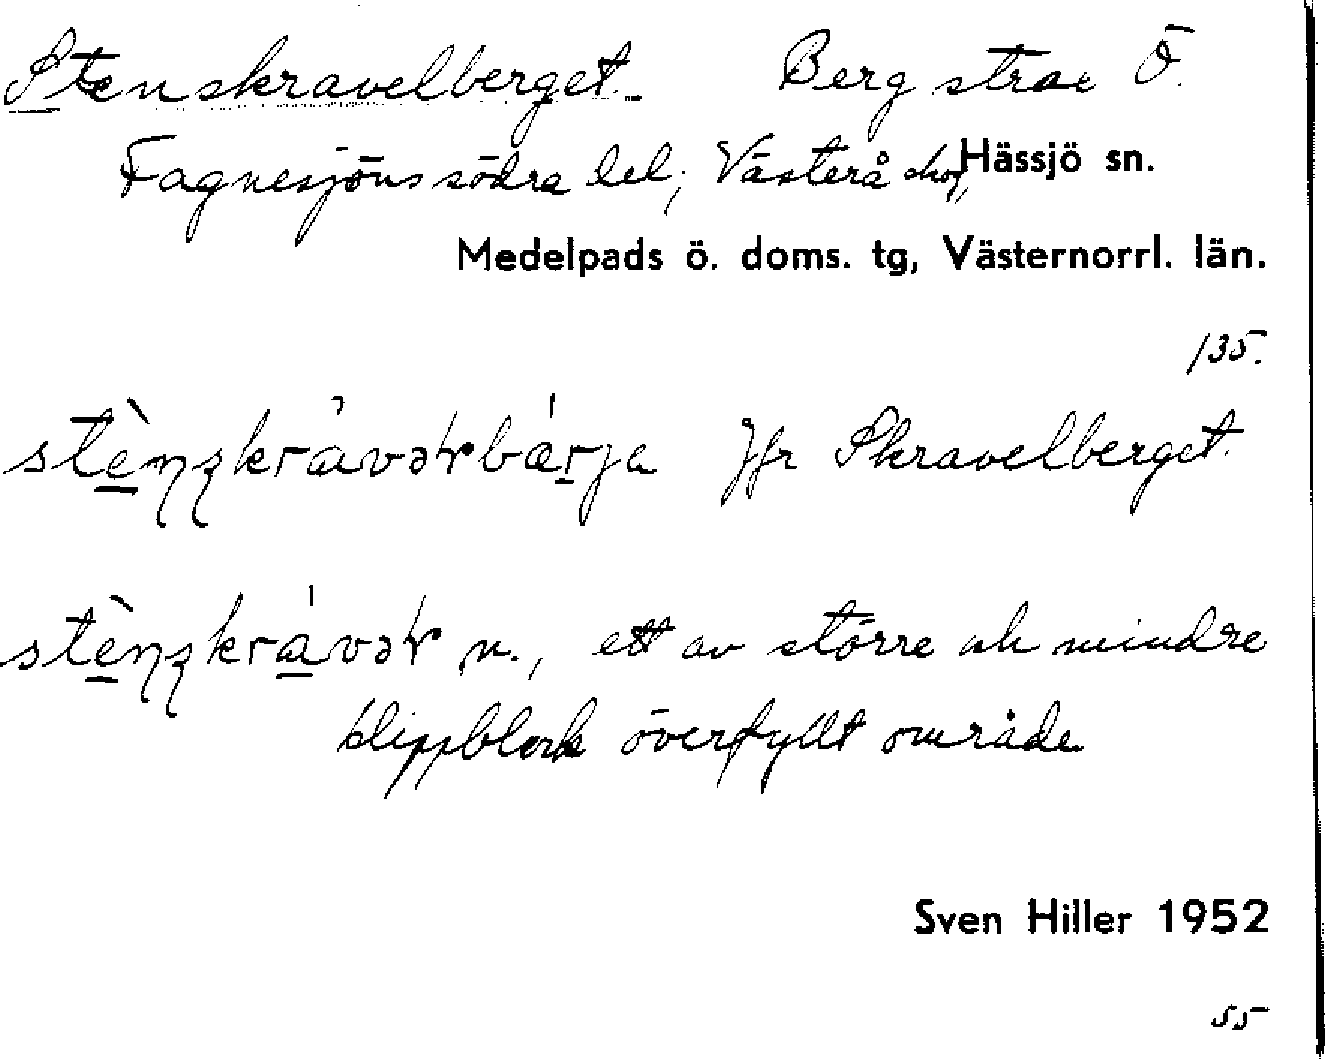 Stenskravelberget Berg strax Ö.
Fagnesjöns södra del; Västerå skog, Hässjö sn.
Medelpads ö. doms. tg, Västernorrl. län.
135.
Jfr Skravelberget.
n., ett av större och mindre
klippblock överfyllt område
Sven Hiller 1952
55